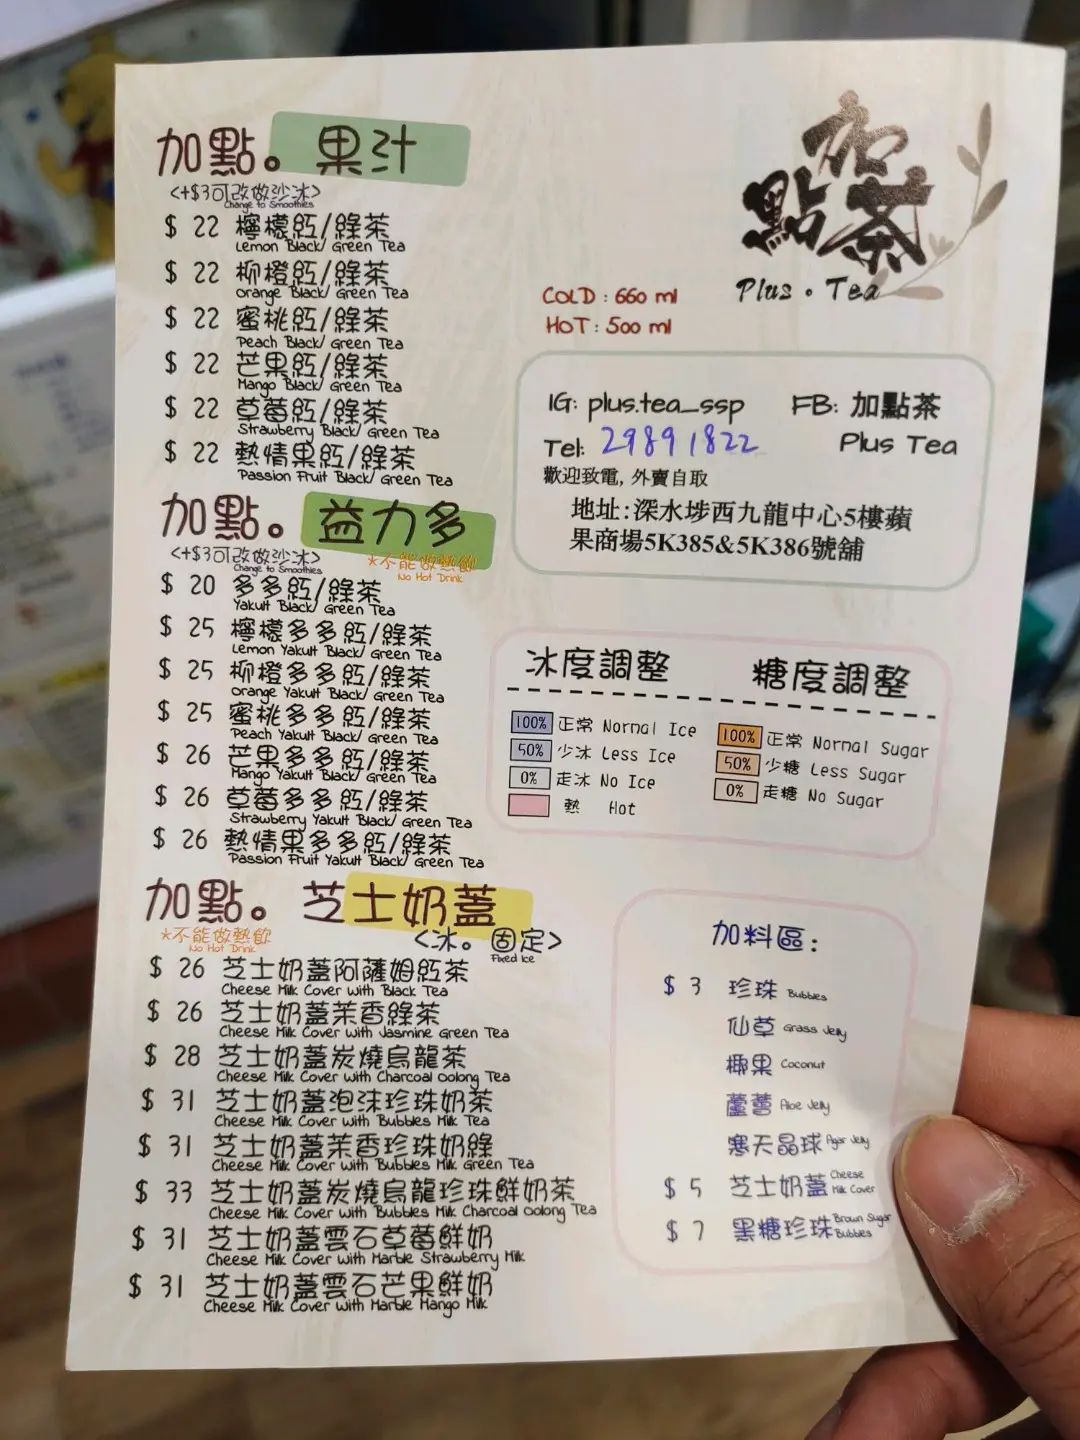 加點。果汁
<+$3可改做沙冰>
Change to Smoothies
$ 22 檸檬紅/綠茶
Lemon Black/ Green Tea
$ 22 柳橙紅/綠茶
Orange Black/ Green Tea
$ 22 蜜桃紅/綠茶
Peach Black/ Green Tea
$ 22 芒果紅/綠茶
Mango Black/ Green Tea
$ 22 草莓紅/綠茶
Strawberry Black/ Green Tea
$ 22 熱情果紅/綠茶
Passion Fruit Black/ Green Tea
加點。益力多
<+$3可改做沙冰>
Change to Smoothies
*不能做熱飲
No Hot Drink
$ 20 多多紅/綠茶
Yakult Black/ Green Tea
$ 25 檸檬多多紅/綠茶
Lemon Yakult Black/ Green Tea
$ 25 柳橙多多紅/綠茶
Orange Yakult Black/ Green Tea
$ 25 蜜桃多多紅/綠茶
Peach Yakult Black/ Green Tea
$ 26 芒果多多紅/綠茶
Mango Yakult Black/ Green Tea
$ 26 草莓多多紅/綠茶
Strawberry Yakult Black/ Green Tea
$ 26 熱情果多多紅/綠茶
Passion Fruit Yakult Black/ Green Tea
加點。芝士奶蓋
*不能做熱飲
No Hot Drink
<冰。固定>
Fixed Ice
$ 26 芝士奶蓋阿薩姆紅茶
Cheese Milk Cover with Black Tea
$ 26 芝士奶蓋茉香綠茶
Cheese Milk Cover with Jasmine Green Tea
$ 28 芝士奶蓋炭燒烏龍茶
Cheese Milk Cover with Charcoal Oolong Tea
$ 31 芝士奶蓋泡沫珍珠奶茶
Cheese Milk Cover with Bubbles Milk Tea
$ 31 芝士奶蓋茉香珍珠奶綠
Cheese Milk Cover with Bubbles Milk Green Tea
$ 33 芝士奶蓋炭燒烏龍珍珠鮮奶茶
Cheese Milk Cover with Bubbles Milk Charcoal Oolong Tea
$ 31 芝士奶蓋雲石草莓鮮奶
Cheese Milk Cover with Marble Strawberry Milk
$ 31 芝士奶蓋雲石芒果鮮奶
Cheese Milk Cover with Marble Mango Milk
加點茶
Plus。Tea
COLD : 660 ml
HOT : 500 ml
IG: plus.tea_ssp FB: 加點茶
Tel: 29891822 Plus Tea
歡迎致電, 外賣自取
地址:深水埗西九龍中心5樓蘋
果商場5K385&5K386號舖
冰度調整
100% 正常 Normal Ice
50% 少冰 Less Ice
0% 走冰 No Ice
熱 Hot
糖度調整
100% 正常 Normal Sugar
50% 少糖 Less Sugar
0% 走糖 No Sugar
加料區:
$ 3 珍珠 Bubbles
仙草 Grass Jelly
椰果 Coconut
蘆薈 Aloe Jelly
寒天晶球 Agar Jelly
$ 5 芝士奶蓋 Cheese Milk Cover
$ 7 黑糖珍珠 Brown Sugar Bubbles